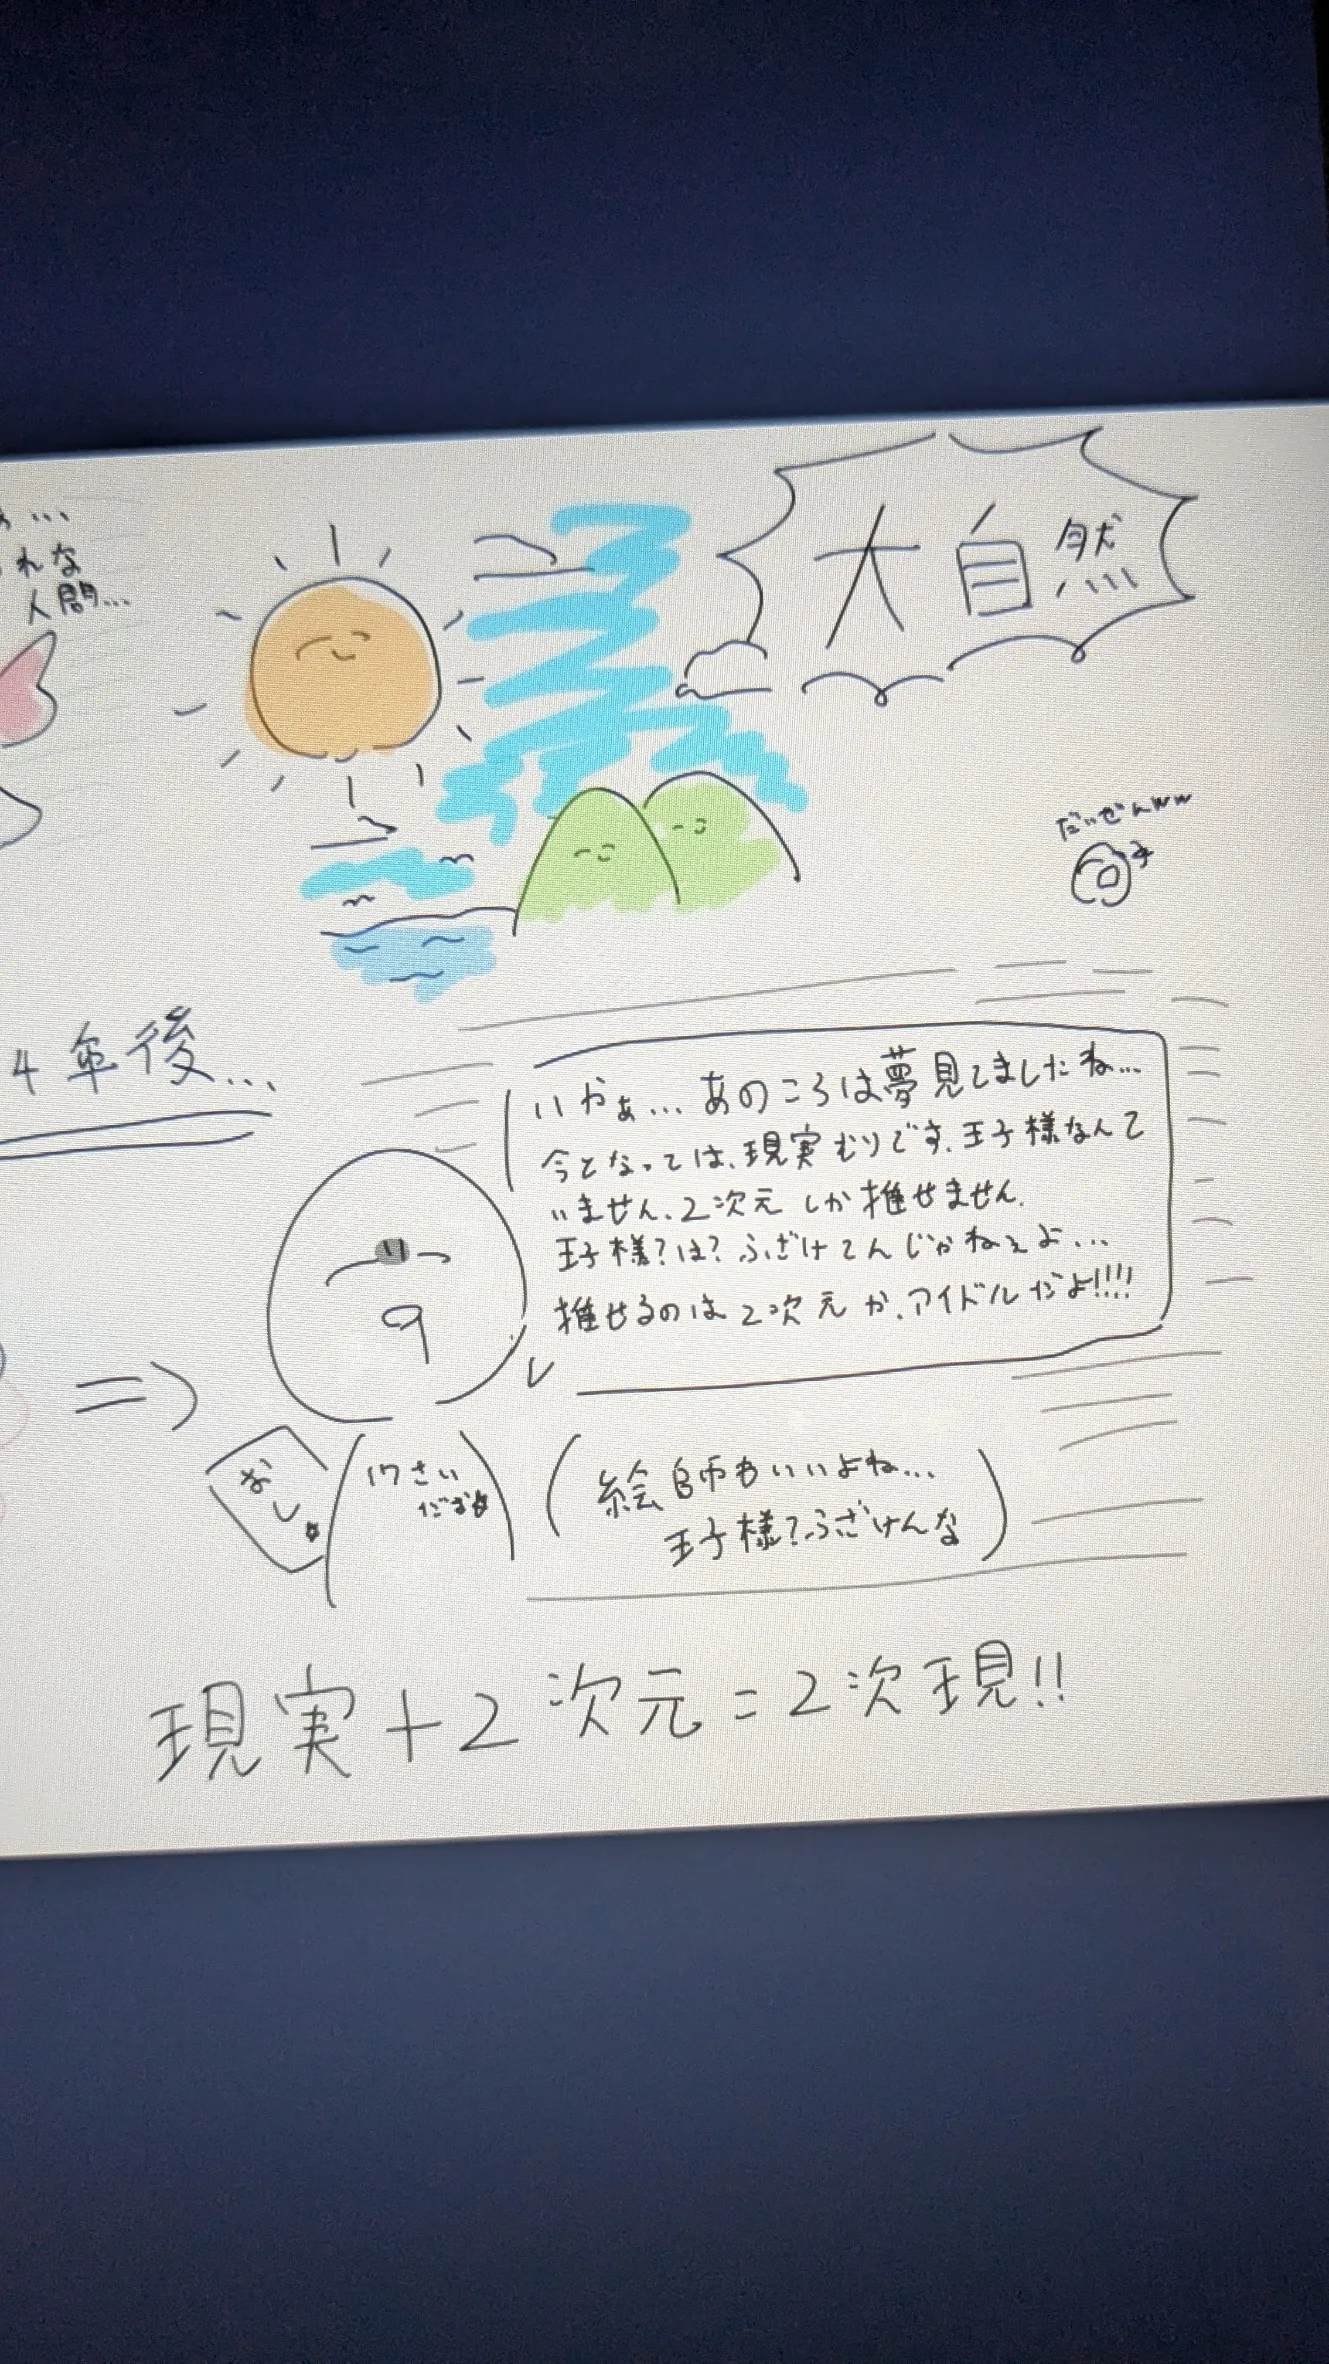 …
れな
人間…
大自然
だいぜんww
4年後…
いやぁ…あのころは夢見てましたね…
今となっては、現実むりです。王子様なんて
いません、2次元しか推せません。
王子様?は?ふざけてんじゃねぇよ…
推せるのは2次元か、アイドルだよ!!!!
おし
17さい
だお
(絵師もいいよね…
王子様?ふざけんな)
現実+2次元=2次現!!